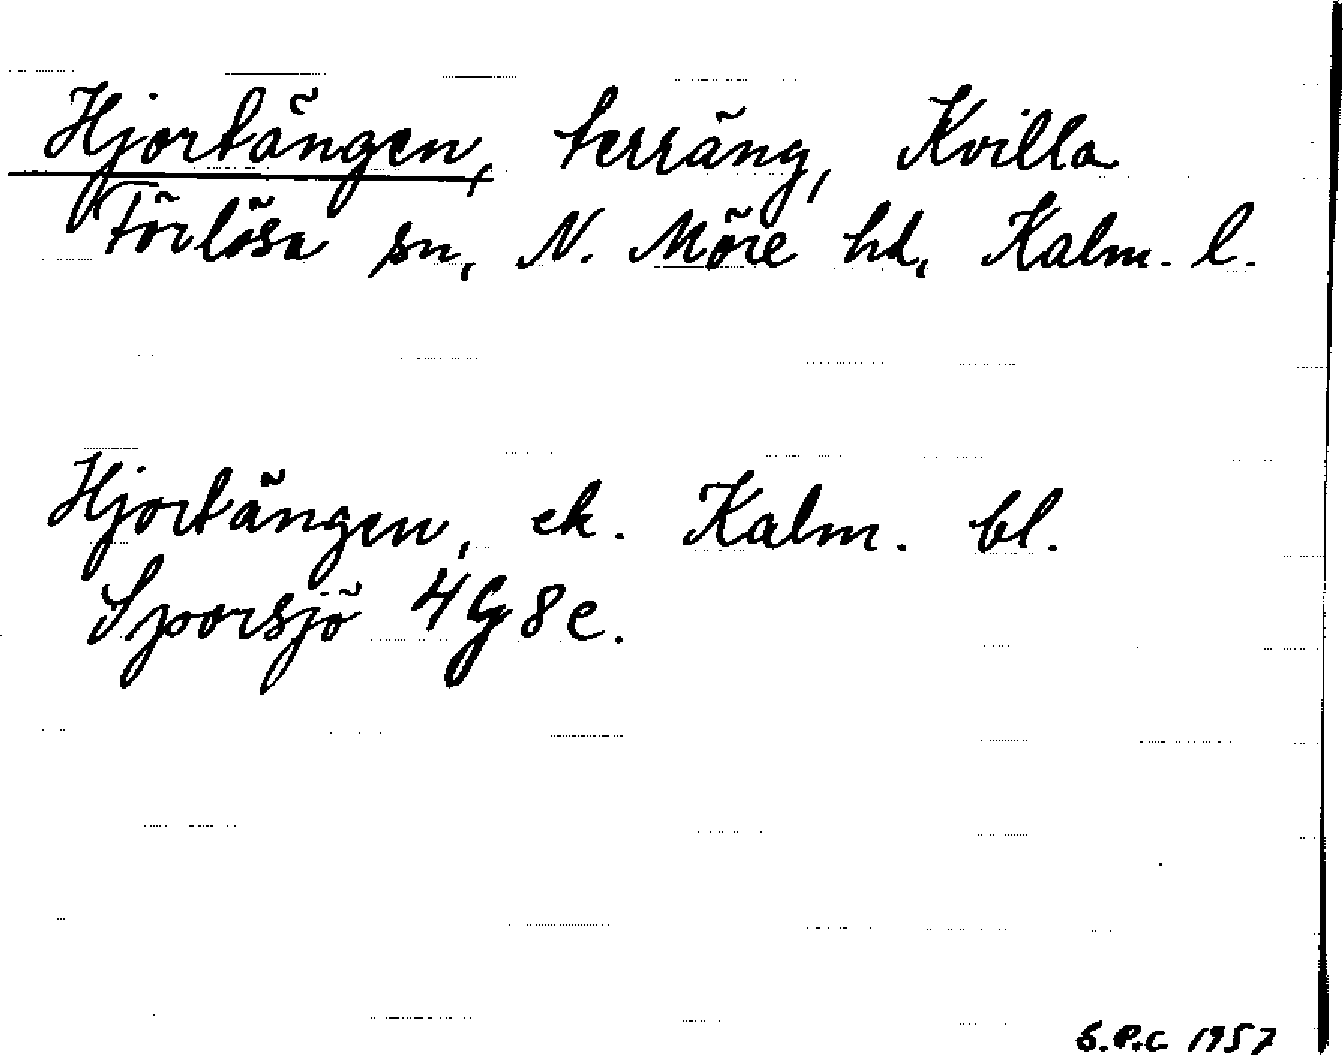 Hjortängen, terräng, Kvilla
Förlösa sn, N. Möre hd, Kalm. l.
Hjortängen, ek. Kalm. bl.
Sporsjö 4G8e.
G.P.C 1957